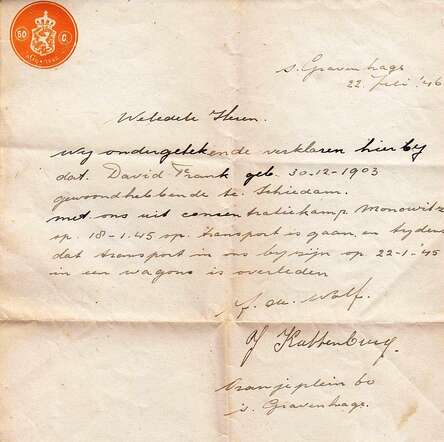 50 C.
s. Gravenhage
22 Juli '46
Weledele Heren.
Wij ondergetekende verklaren hierbij
dat. David Frank geb. 30-12-1903
gewoond hebbende te. Schiedam.
met ons uit consentratiekamp Monowitz
op. 18-1.45 op. transport is gaan, en tijdens
dat transport in ons bijzijn op 22-1-'45
in een wagons is overleden
de Wolf.
J Kattenburg.
Oranjeplein 60
s. Gravenhage.